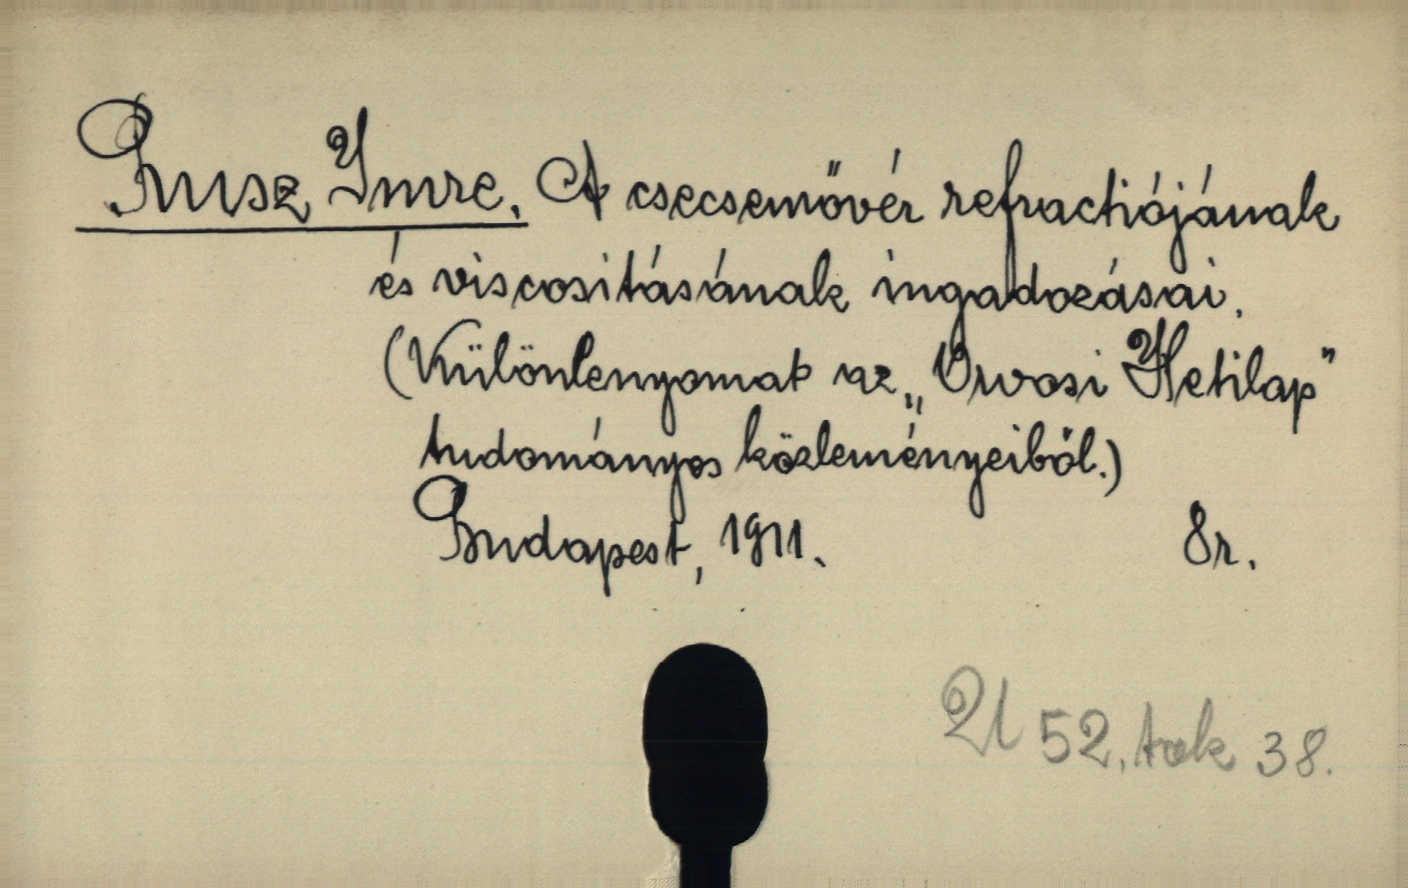 Rusz Imre. A csecsemővér refractiójának
és viscositásának ingadozásai.
(Különlenyomat az „Orvosi Hetilap"
tudományos közleményeiből.)
Budapest, 1911. 8r.
52, tok 38.